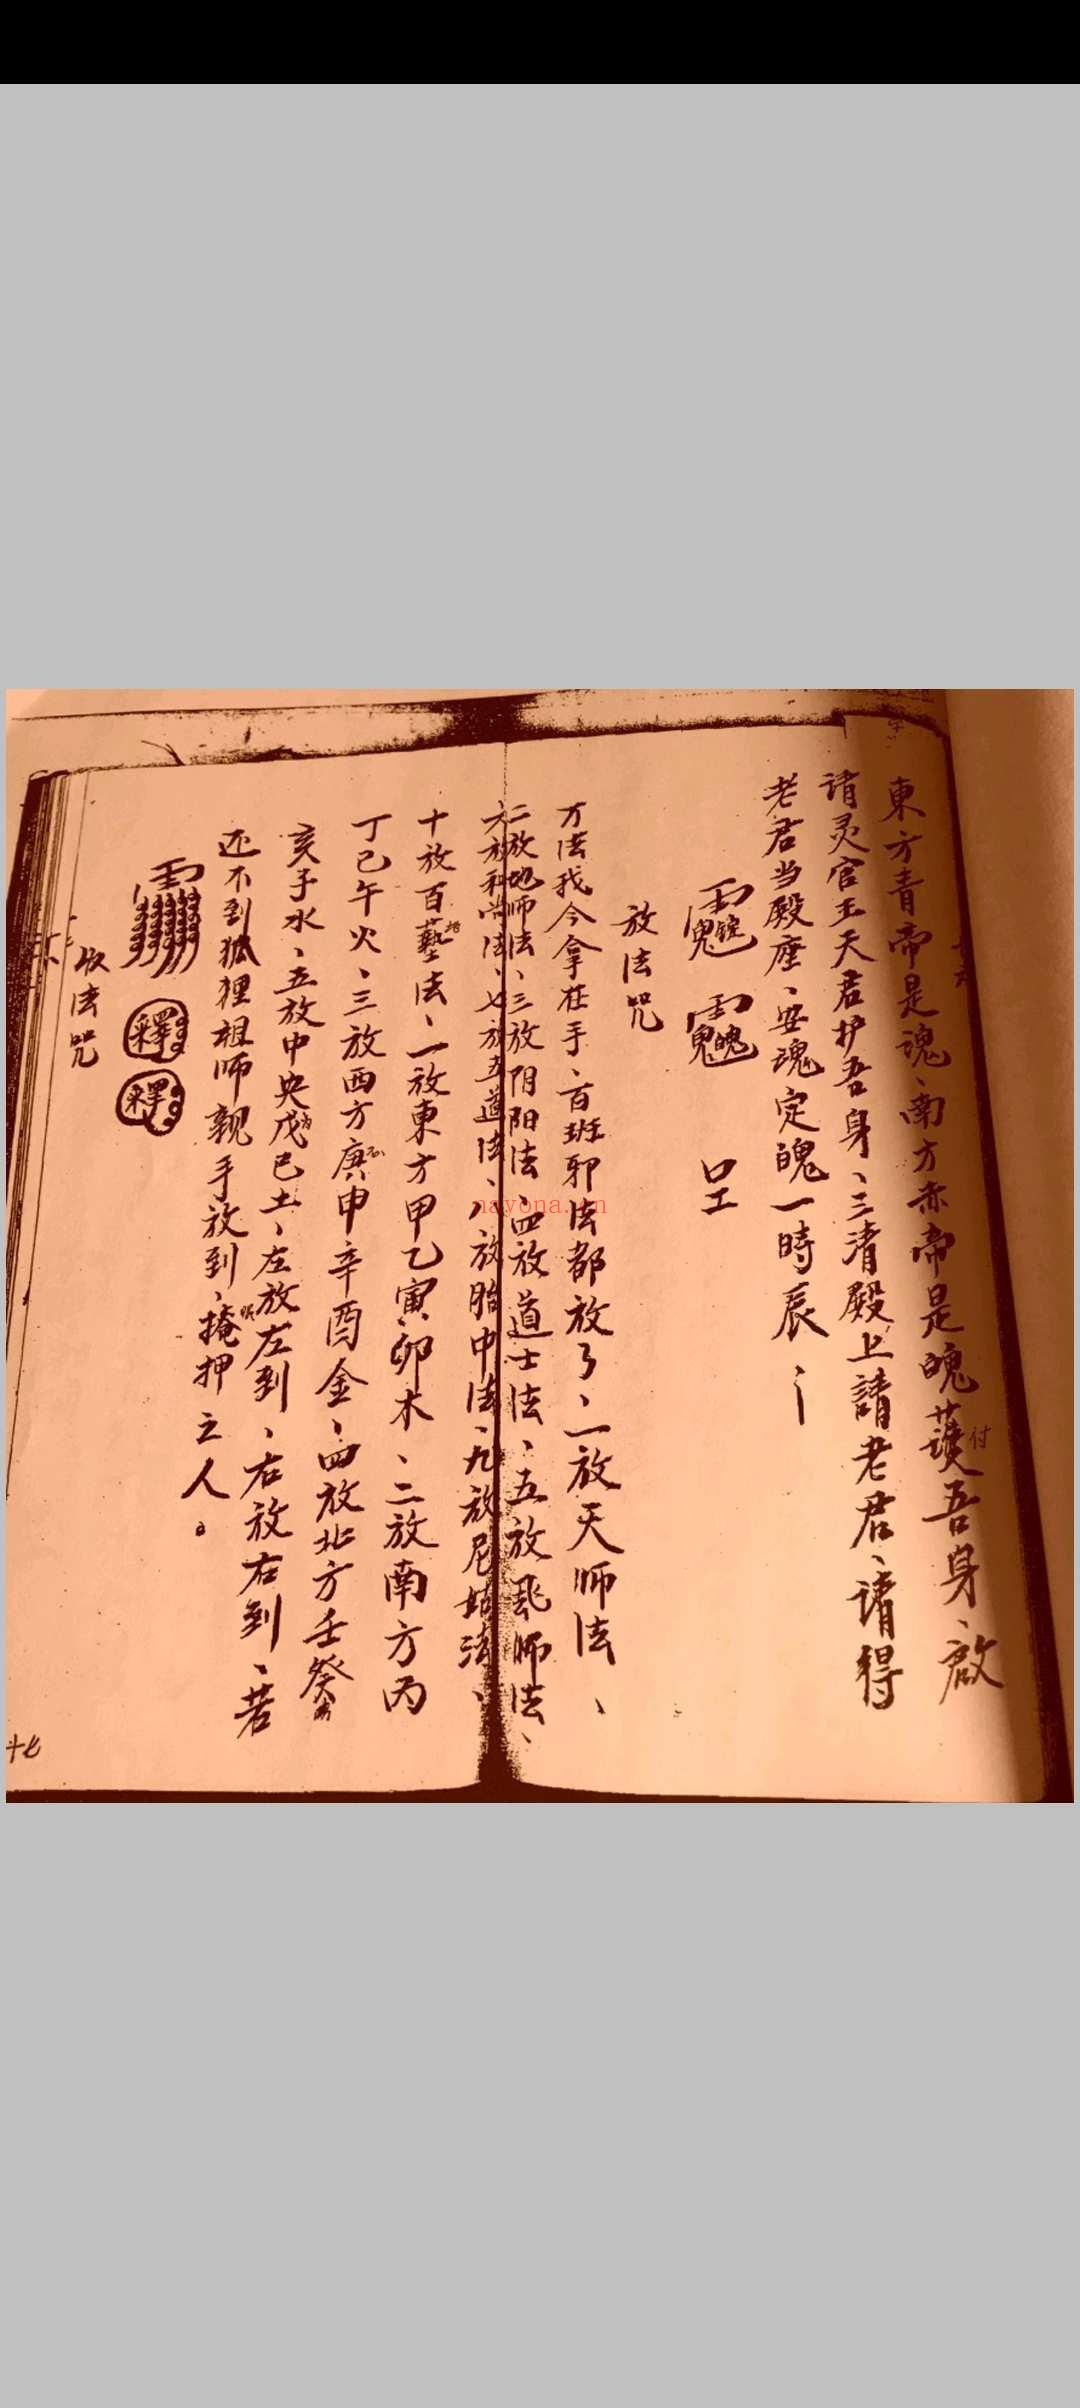 東方青帝是魂、南方赤帝是魄護吾身、啟
付
请灵官王天君护吾身、三清殿上請老君、请得
老君当殿座、安魂定魄一時辰、
放法咒
万法我今拿在手、百班邪法都放了、一放天师法、
二放地师法、三放阴阳法、四放道士法、五放巫师法、
六放和尚法、七放五道法、八放胎中法、九放尼姑法、
十放百藝法、一放東方甲乙寅卯木、二放南方丙
丁巳午火、三放西方庚申辛酉金、四放北方壬癸
亥子水、五放中央戊己土、左放左到、右放右到、若
还不到狐狸祖师親手放到、掩押之人。
釋
釋
收法咒
十七
nayona.cn